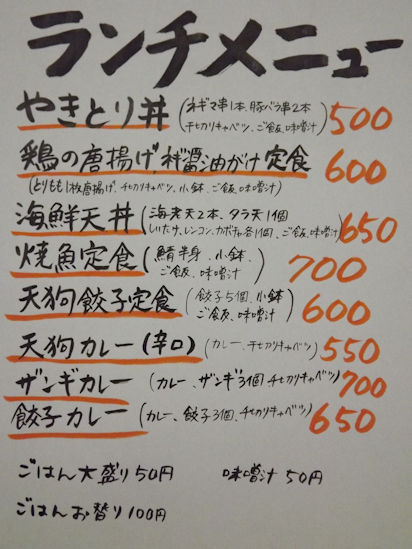 ランチメニュー
やきとり丼 (ネギマ串1本、豚バラ串2本 500
千切りキャベツ、ご飯、味噌汁)
鶏の唐揚げネギ醤油がけ定食 600
(とりもも1枚唐揚げ、千切りキャベツ、小鉢、ご飯、味噌汁)
海鮮天丼 (海老天2本、タラ天1個 650
しいたけ、レンコン、カボチャ各1個、ご飯、味噌汁)
焼魚定食 (鯖半身、小鉢、 700
ご飯、味噌汁)
天狗餃子定食 (餃子5個、小鉢 600
ご飯、味噌汁)
天狗カレー(辛口) (カレー、千切りキャベツ) 550
ザンギカレー (カレー、ザンギ3個 千切りキャベツ) 700
餃子カレー (カレー、餃子3個、千切りキャベツ) 650
ごはん大盛り50円 味噌汁 50円
ごはんお替り100円